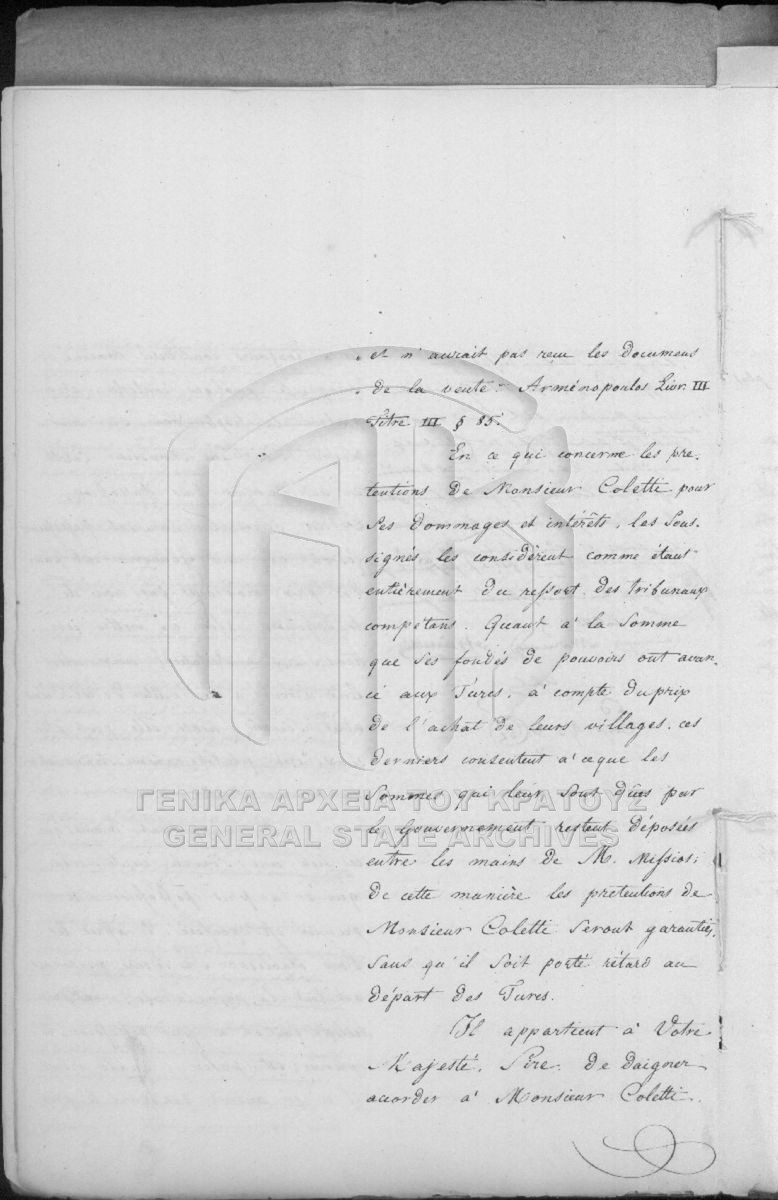 « et n'aurait pas reçu les documens
« de la vente " Arménopoulos Livr. III
Titre III § 85.
En ce qui concerne les pré-
tentions de Monsieur Coletti pour
ses dommages et intérêts, les Sous-
signés les considèrent comme étant
entièrement du ressort des tribunaux
compétans. Quant à la Somme
que ses fondés de pouvoirs ont avan-
cé aux Turcs, à compte du prix
de l'achat de leurs villages, ces
derniers consentent à ce que les
Sommes qui leur Sont dûes par
le Gouvernement restent déposées
entre les mains de M. Missios;
de cette manière les prétentions de
Monsieur Coletti Seront garanties,
Sans qu'il Soit porté rétard au
départ des Turcs.
Il appartient à Votre
Majesté, Sire, de daigner
accorder à Monsieur Coletti
ΓΕΝΙΚΑ ΑΡΧΕΙΑ ΤΟΥ ΚΡΑΤΟΥΣ
GENERAL STATE ARCHIVES